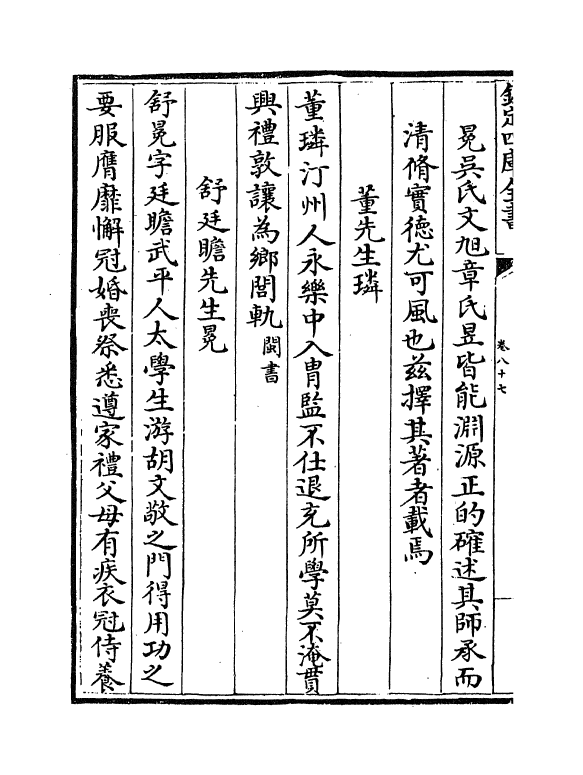 欽定四庫全書
卷八十七
冕吳氏文旭章氏昱皆能淵源正的確述其師承而
清脩實德尤可風也兹擇其著者載焉
董先生璘
董璘汀州人永樂中入胄監不仕退充所學莫不淹貫
興禮敦讓為鄉閭軌閩書
舒廷瞻先生冕
舒冕字廷瞻武平人太學生游胡文敬之門得用功之
要服膺靡懈冠婚喪祭悉遵家禮父母有疾衣冠侍養